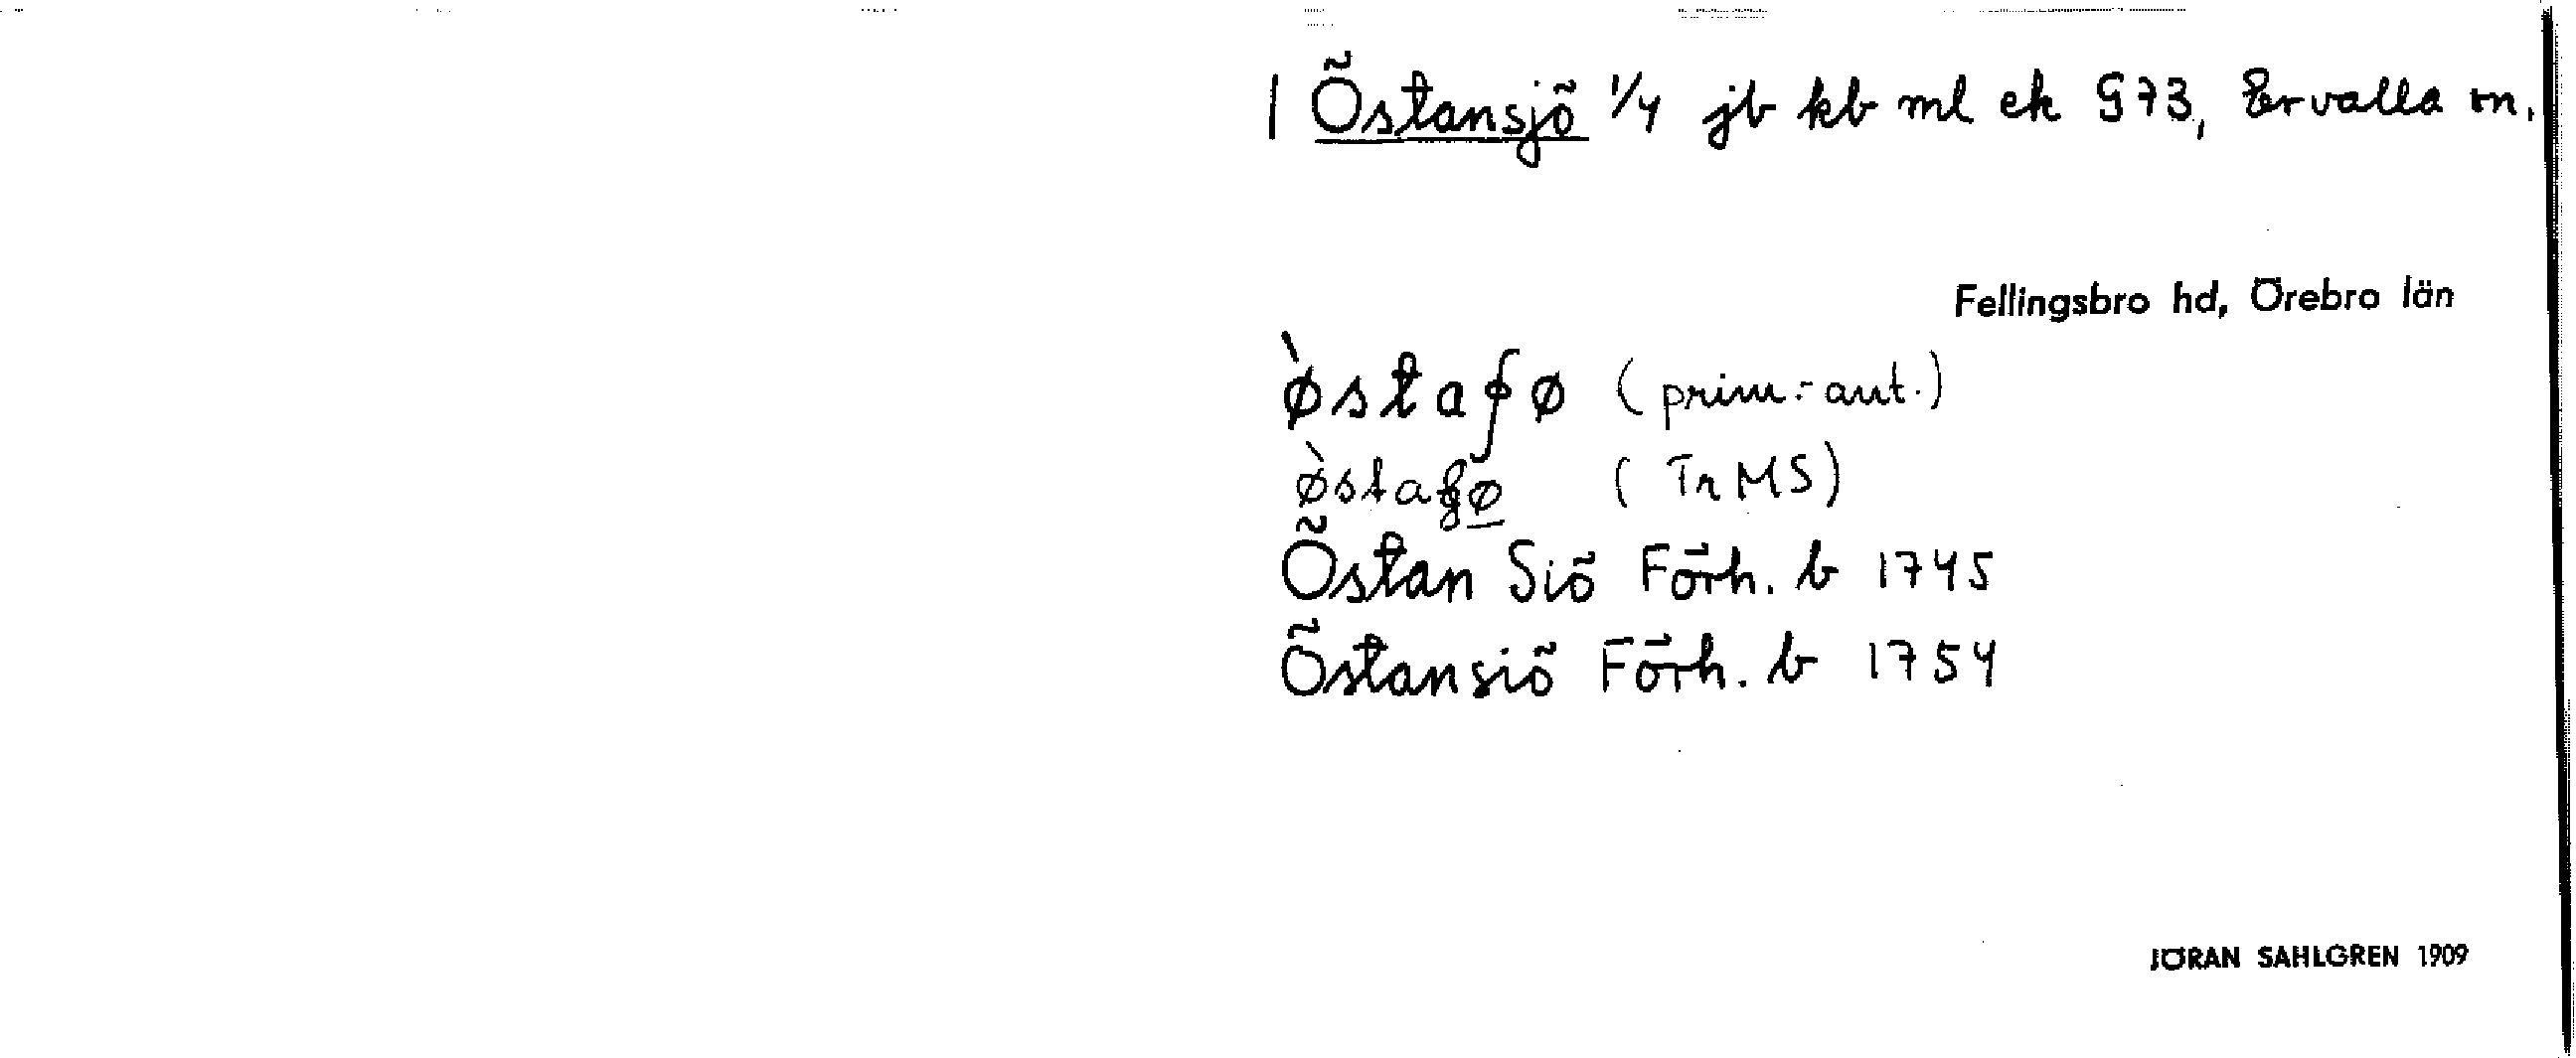 | Östansjö 1/4 jb kb ml ek G73, Ervalla sn.
Fellingsbro hd, Örebro län
ø̀staʄø (prim.-aut.)
(Tr MS)
Östan Siö Förh. b 1745
Östansiö Förh. b 1754
JÖRAN SAHLGREN 1909